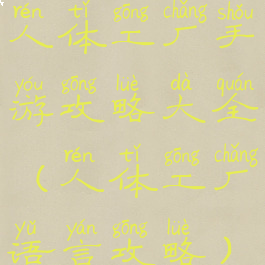 rén tǐ gōng chǎng shǒu
人体工厂手
yóu gōng lüè dà quán
游攻略大全
rén tǐ gōng chǎng
（人体工厂
yǔ yán gōng lüè
语言攻略）